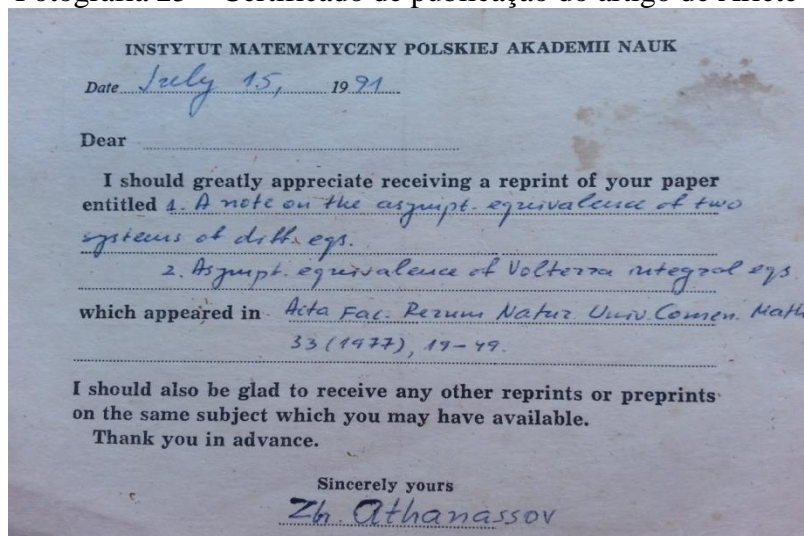 Fotografia 25 – Certificado de publicação do artigo de Arlete
INSTYTUT MATEMATYCZNY POLSKIEJ AKADEMII NAUK
Date July 15, 1991
Dear
I should greatly appreciate receiving a reprint of your paper
entitled 1. A note on the asympt. equivalence of two
systems of diff. eqs.
2. Asympt. equivalence of Volterra integral eqs.
which appeared in Acta Fac. Rerum Natur. Univ. Comen. Math
33 (1977), 19-49.
I should also be glad to receive any other reprints or preprints
on the same subject which you may have available.
Thank you in advance.
Sincerely yours
Zh. Athanassov